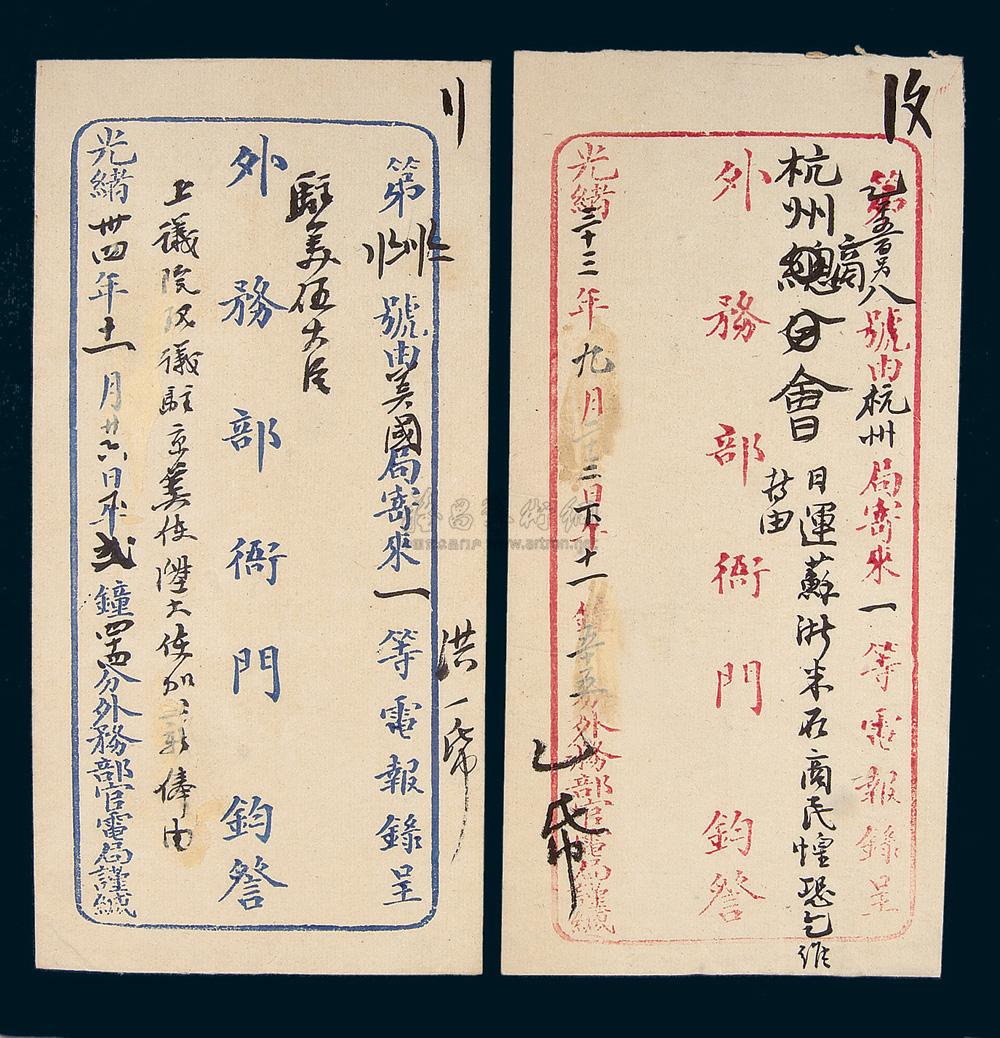 收
第
八號由杭州局寄來一等電報錄呈
商
杭州總分會
日運蘇浙米石商民惶恐乞維
持由
外務部衙門鈞啓
光緒三十三年九月二十三日下午十一鐘五十五分外務部官電局謹緘
第
號由美國局寄來一等電報錄呈
洪
駐美伍大臣
外務部衙門鈞啓
上議院改議駐京美使陞大使加
俸由
光緒卅四年十一月廿六日午弍鐘四十四分外務部官電局謹緘